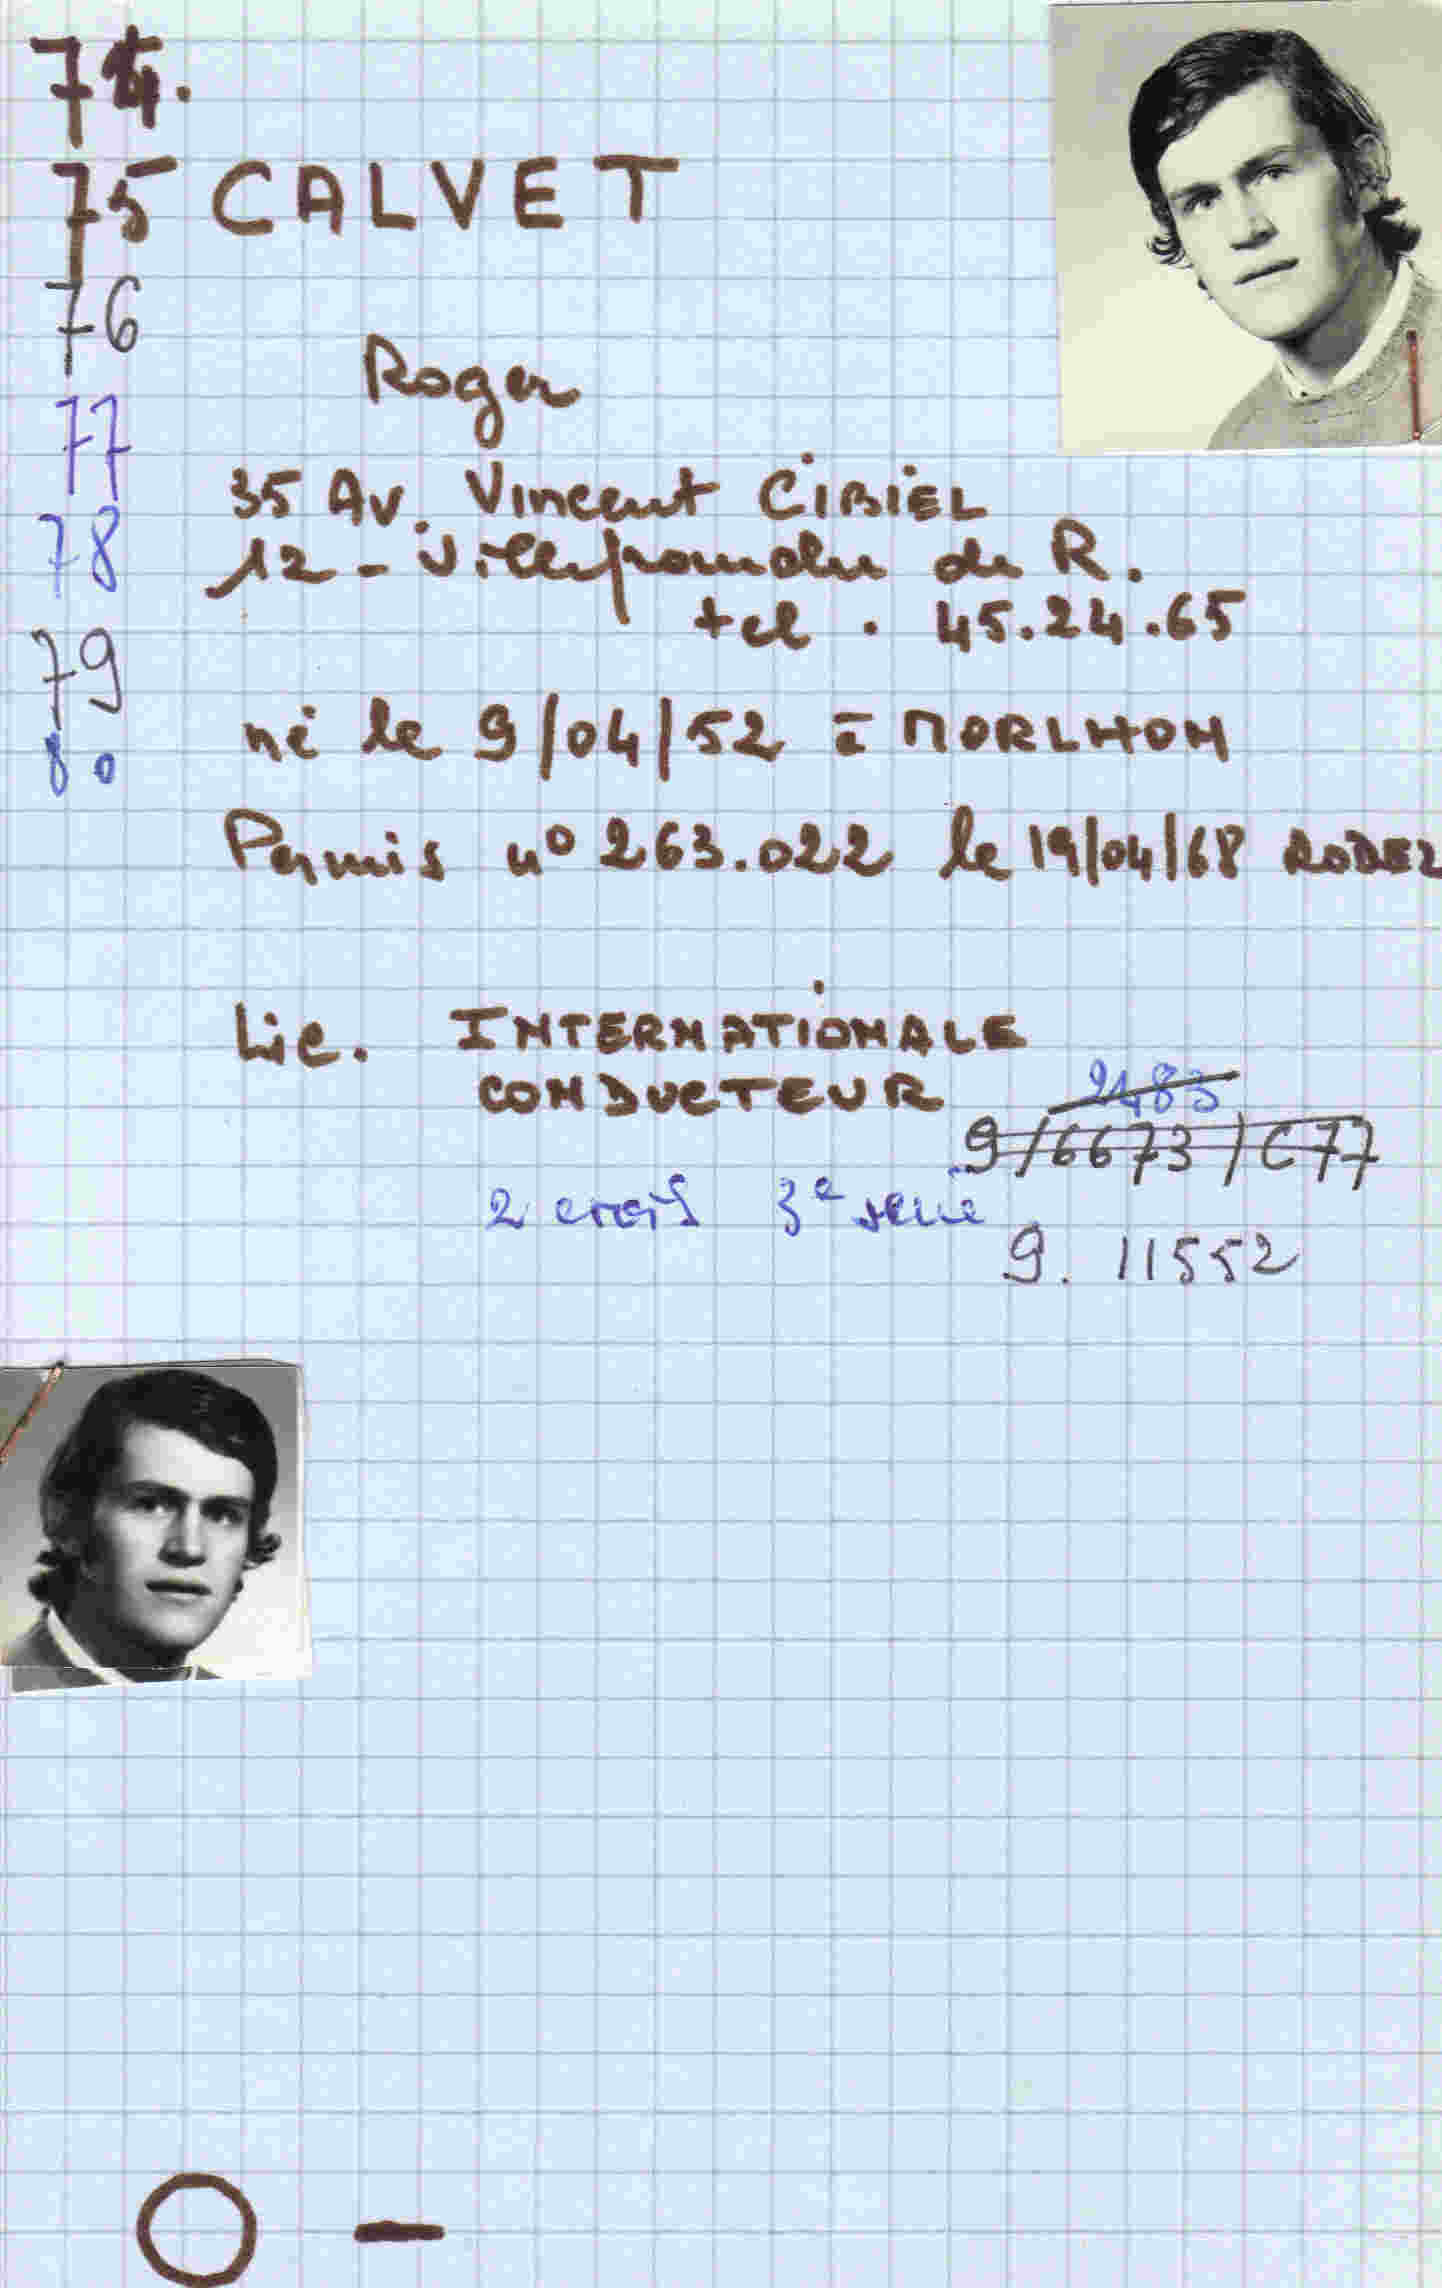 74.
75 CALVET
76
Roger
77
35 Av. Vincent CIBIEL
78
12 - Villefranche de R.
tel . 45.24.65
79
né le 9/04/52 à MORLHON
80
Permis n° 263.022 le 19/04/68 RODEZ
Lic. INTERNATIONALE
CONDUCTEUR
9/6673/C77
2 3e serie
9. 11552
O -